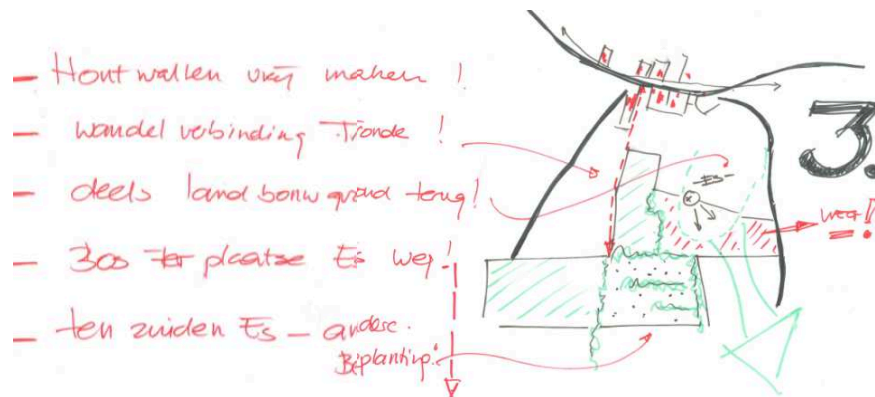 - Hout wallen vrij maken !
- wandel verbinding Tiende !
- deels landbouwgrond terug!
- Bos ter plaatse Es weg!
- ten zuiden Es - andere.
Biplanting!
3.
Es
weg!!